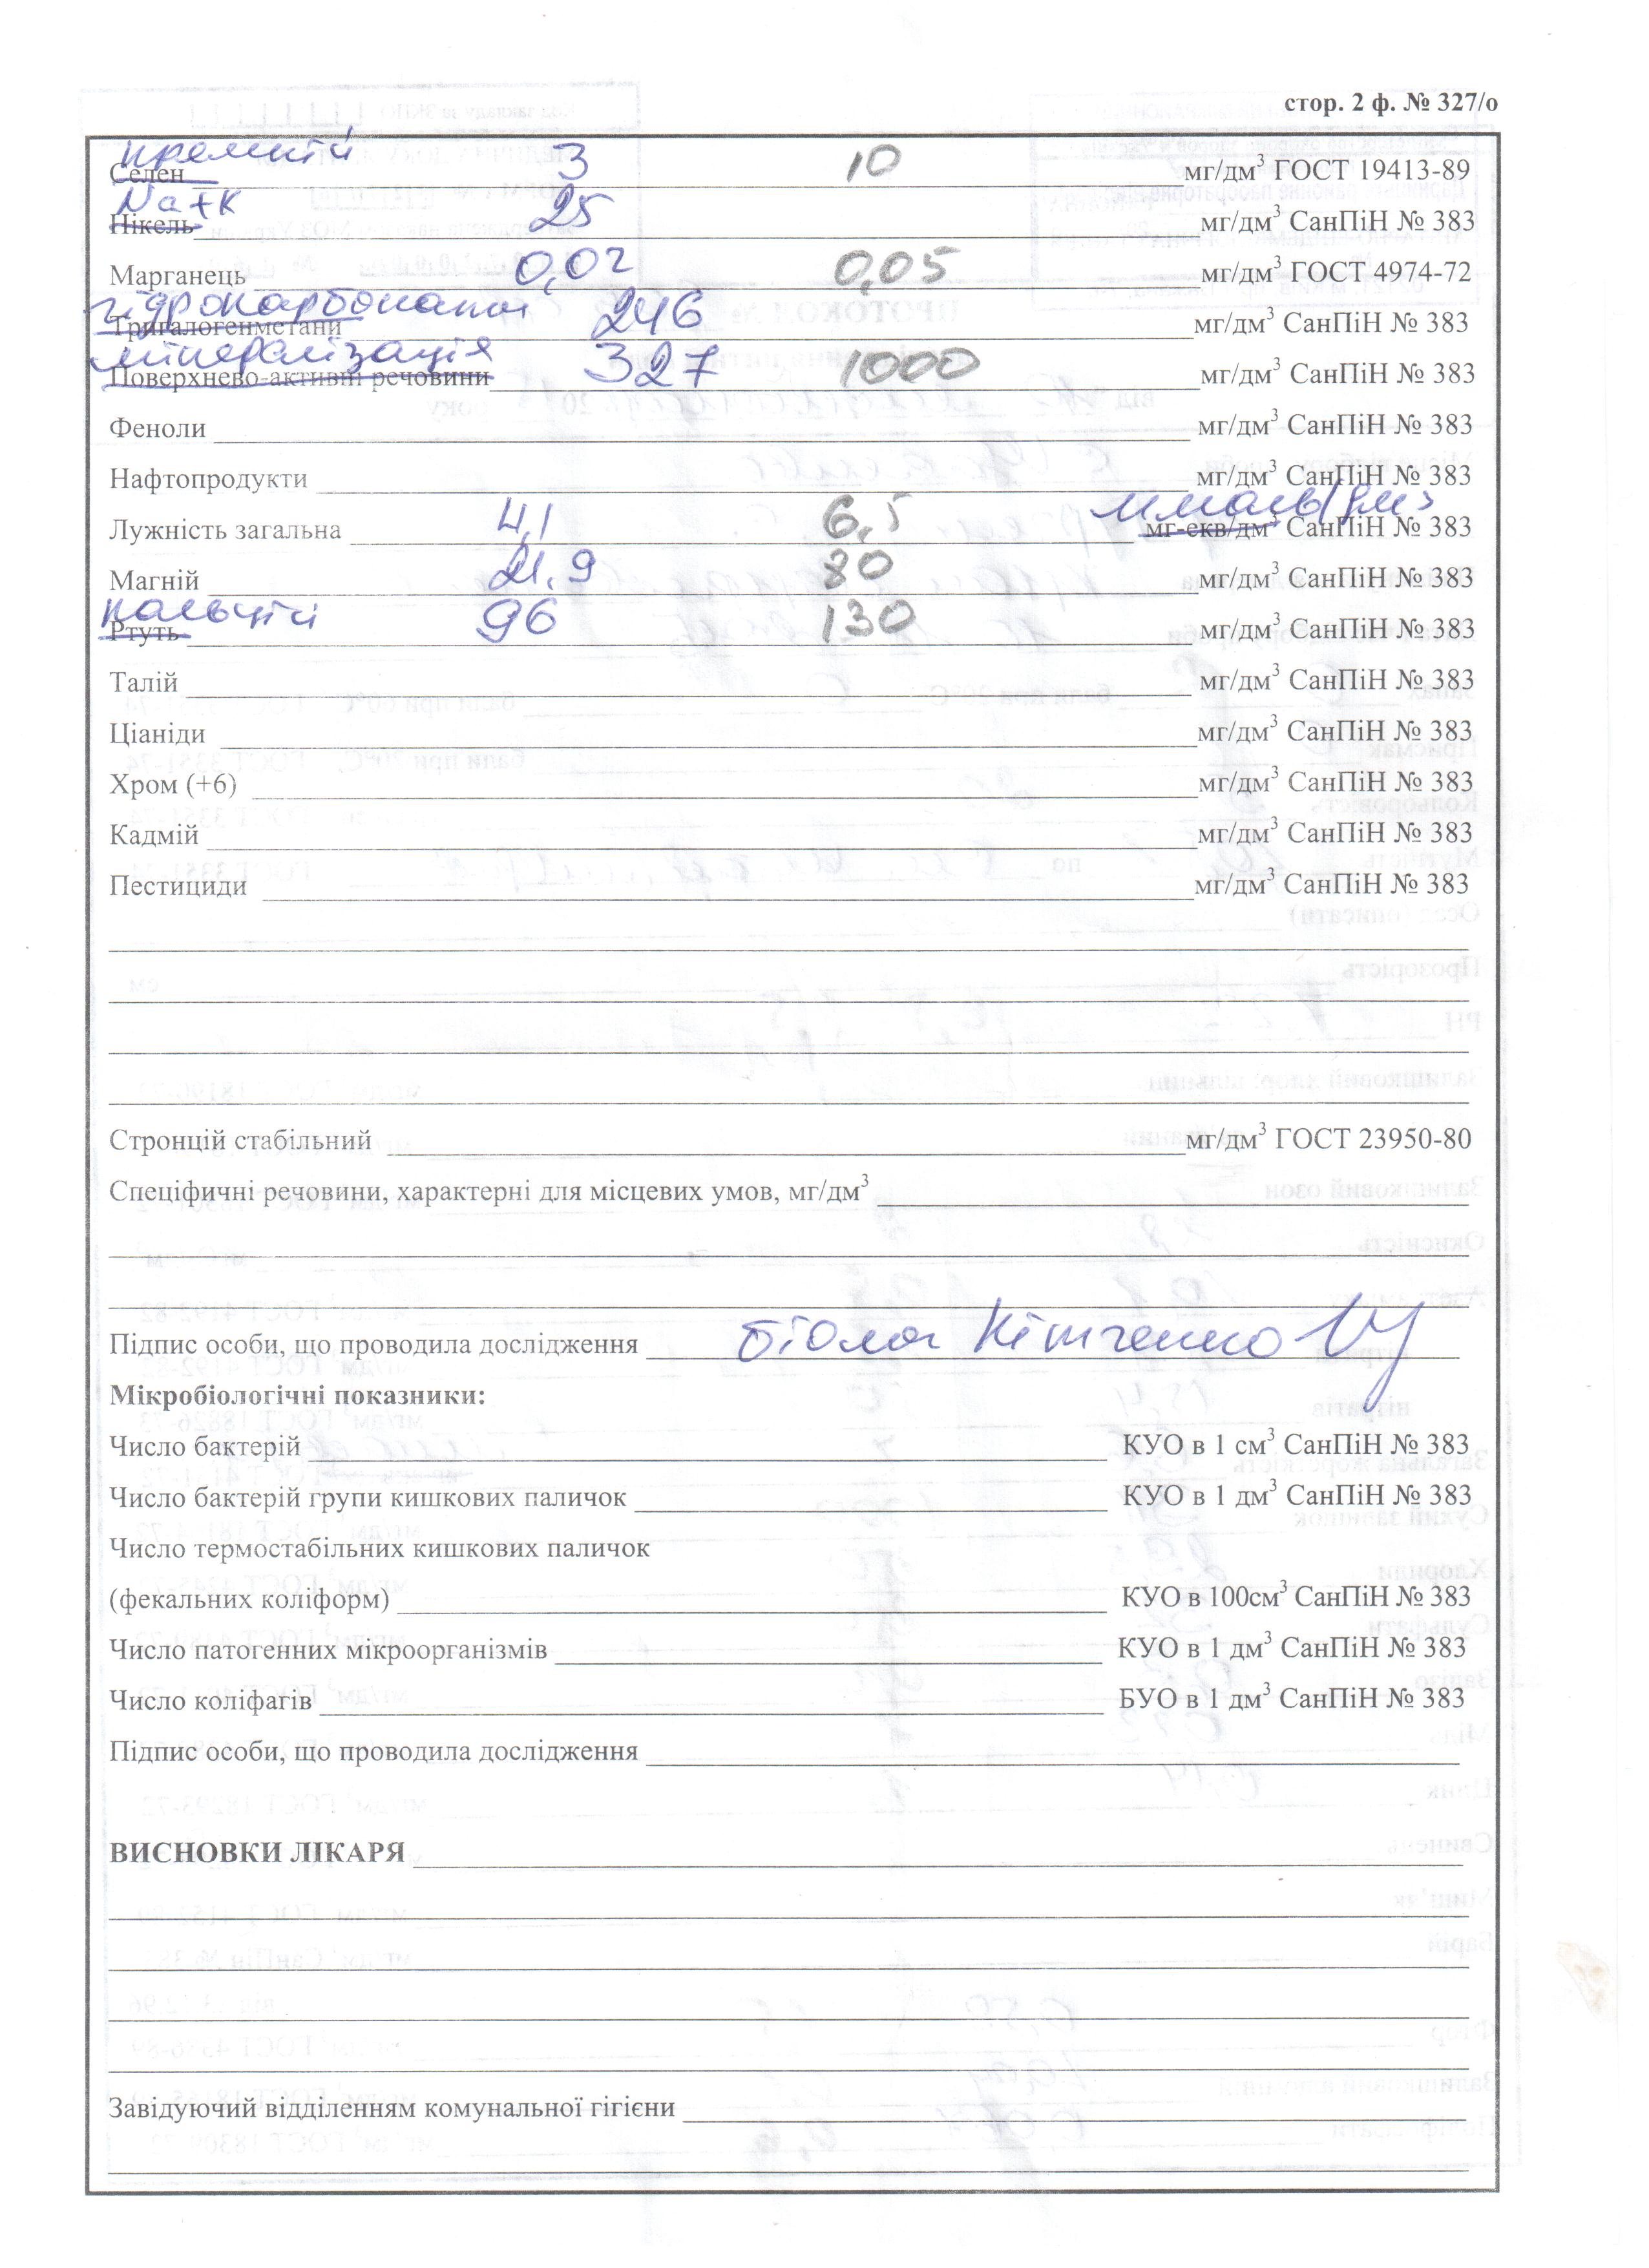 стор. 2 ф. № 327/о
кремній
Селен 3 10 мг/дм³ ГОСТ 19413-89
Na+K
Нікель 25 мг/дм³ СанПіН № 383
Марганець 0,02 0,05 мг/дм³ ГОСТ 4974-72
гідрокарбонати
Тригалогенметани 246 мг/дм³ СанПіН № 383
мінералізація
Поверхнево-активні речовини 327 1000 мг/дм³ СанПіН № 383
Феноли мг/дм³ СанПіН № 383
Нафтопродукти мг/дм³ СанПіН № 383
ммоль/дм3
Лужність загальна 4,1 6,5 мг-екв/дм³ СанПіН № 383
Магній 21,9 80 мг/дм³ СанПіН № 383
кальцій
Ртуть 96 130 мг/дм³ СанПіН № 383
Талій мг/дм³ СанПіН № 383
Ціаніди мг/дм³ СанПіН № 383
Хром (+6) мг/дм³ СанПіН № 383
Кадмій мг/дм³ СанПіН № 383
Пестициди мг/дм³ СанПіН № 383
Стронцій стабільний мг/дм³ ГОСТ 23950-80
Спеціфичні речовини, характерні для місцевих умов, мг/дм³
Підпис особи, що проводила дослідження біолог
Мікробіологічні показники:
Число бактерій КУО в 1 см³ СанПіН № 383
Число бактерій групи кишкових паличок КУО в 1 дм³ СанПіН № 383
Число термостабільних кишкових паличок
(фекальних коліформ) КУО в 100см³ СанПіН № 383
Число патогенних мікроорганізмів КУО в 1 дм³ СанПіН № 383
Число коліфагів БУО в 1 дм³ СанПіН № 383
Підпис особи, що проводила дослідження
ВИСНОВКИ ЛІКАРЯ
Завідуючий відділенням комунальної гігієни